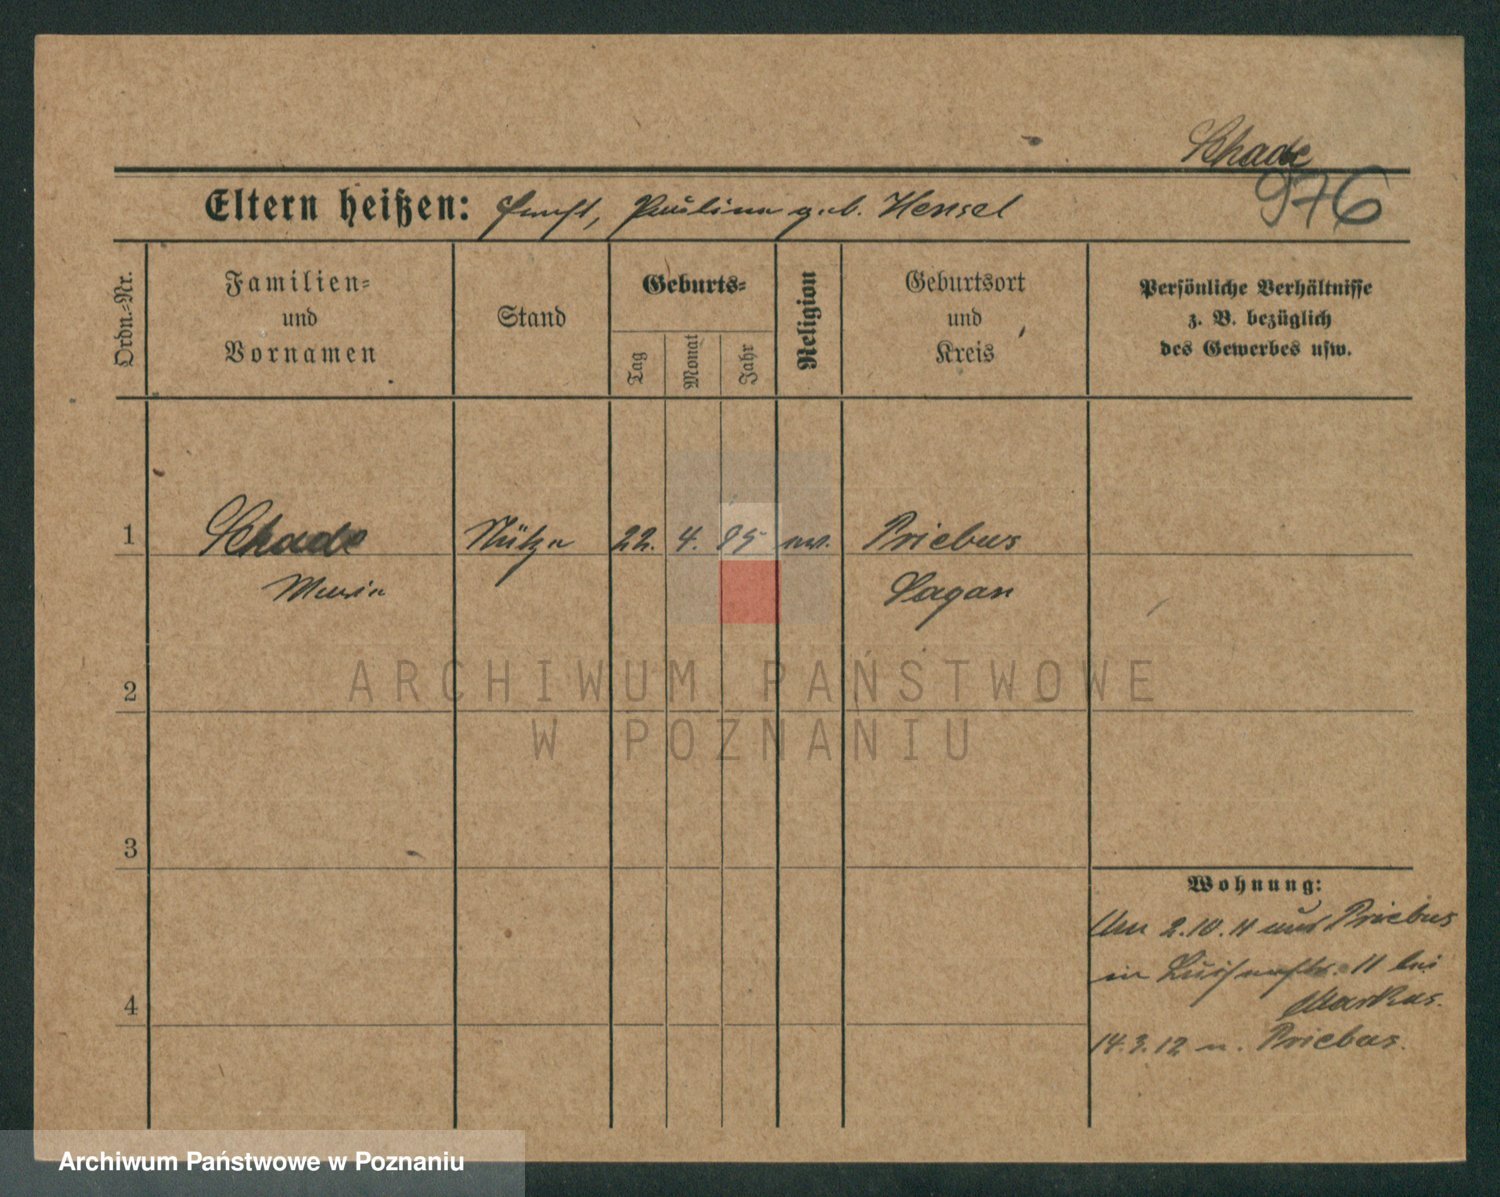 Schade
976
Eltern heißen: Ernst, Pauline geb. Hensel
Ordn.-Nr.
Familien- und Vornamen
Stand
Geburts-
Tag
Monat
Jahr
Religion
Geburtsort und Kreis
Persönliche Verhältnisse z. B. bezüglich des Gewerbes usw.
1 Schade 22. 4. 95 ev. Priebus
Maria Sagan
2
3
4
Wohnung:
Am 2.10.11 aus Priebus
in Luisenstr. 11 bei
Markus.
14.3.12 n. Priebus.
ARCHIWUM PAŃSTWOWE
W POZNANIU
Archiwum Państwowe w Poznaniu